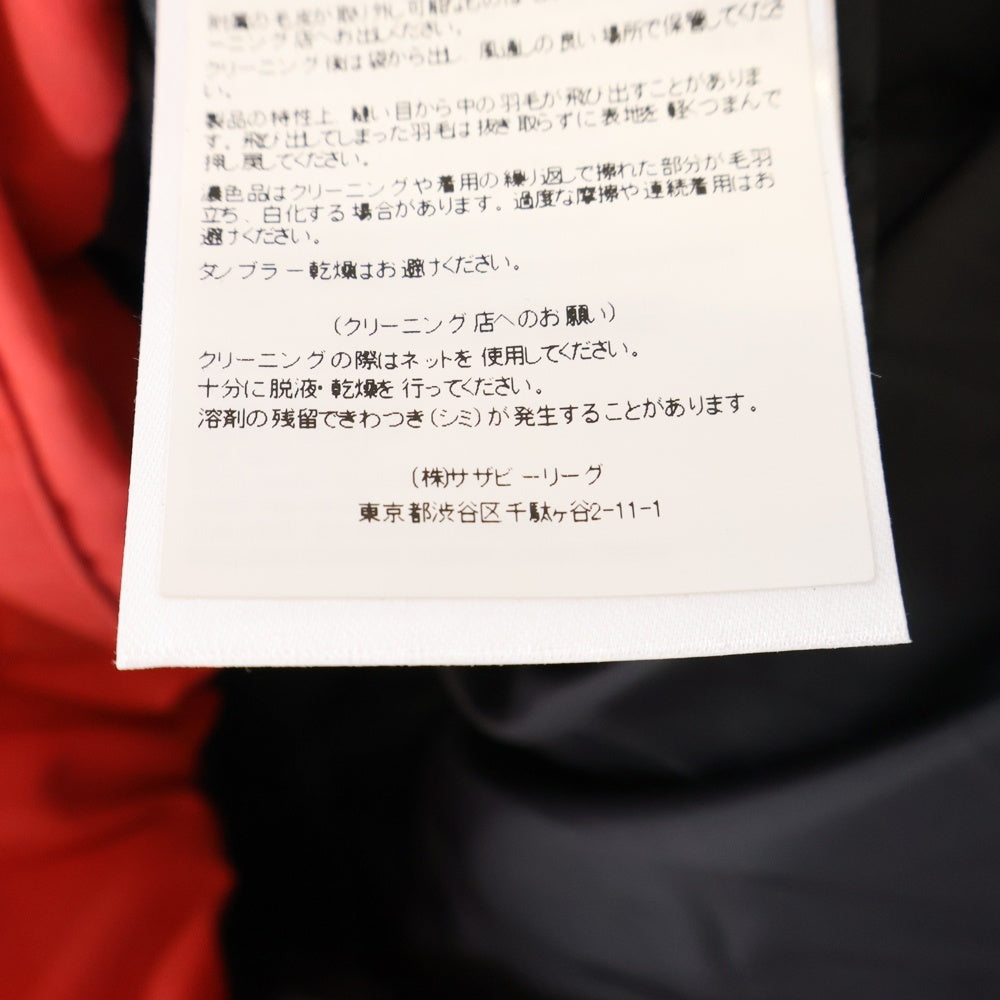 附属の毛皮が取り外し可能なものは
ーニング店へお出しください。
クリーニング後は袋から出し、風通しの良い場所で保管してくださ
い。
製品の特性上、縫い目から中の羽毛が飛び出すことがありま
す。飛び出してしまった羽毛は抜き取らずに表地を軽くつまんで
押し戻してください。
濃色品はクリーニングや着用の繰り返しで擦れた部分が毛羽
立ち、白化する場合があります。過度な摩擦や連続着用はお
避けください。
タンブラー乾燥はお避けください。
(クリーニング店へのお願い)
クリーニングの際はネットを使用してください。
十分に脱液・乾燥を行ってください。
溶剤の残留できわつき(シミ)が発生することがあります。
(株)サザビーリーグ
東京都渋谷区千駄ヶ谷2-11-1